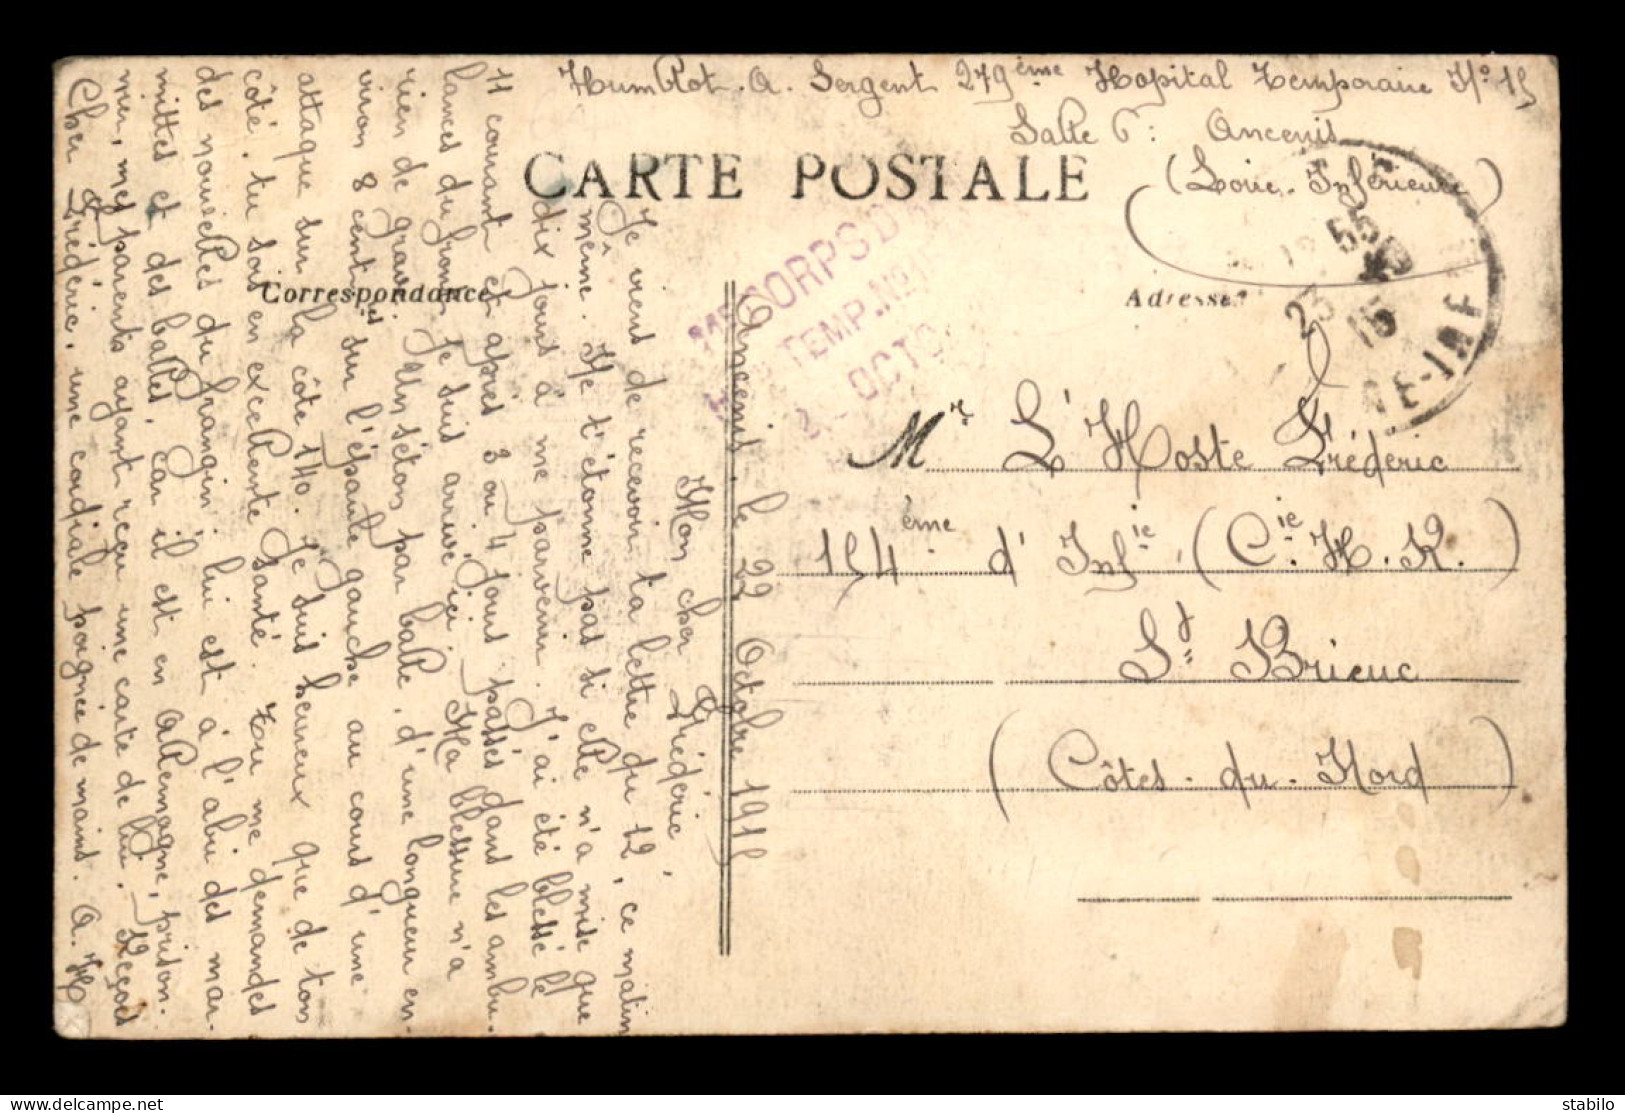 Humblot. A. Sergent 279ème Hopital temporaire No 15
Salle 6: Ancenis
(Loire-Inférieure)
CARTE POSTALE
Correspondance
Adresse
11e CORPS D
TEMP. No 15
2 - OCTO
23
15
RE-INF
Mr L'Hoste Frédéric
154ème d'Infie (Cie H.R.)
St Brieuc
(Côtes-du-Nord)
Ancenis, le 22 Octobre 1915
Mon cher Frédéric,
Je viens de recevoir ta lettre du 12, ce matin
même. Ne t'étonne pas si elle n'a mise que
dix jours à me parvenir. J'ai été blessé le
11 courant et après 3 ou 4 jours passés dans les ambu-
lances du front, je suis arrivé ici. Ma blessure n'a
rien de grave. Un séton par balle, d'une longueur en-
viron 8 centres sur l'épaule gauche au cours d'une
attaque sur la côte 140. Je suis heureux que de ton
côté, tu sois en excellente santé. Tu me demandes
des nouvelles du frangin, lui est à l'abri des mar-
mittes et des balles, car il est en Allemagne, prison-
nier, mes parents ayant reçu une carte de lui. Reçois
Cher Frédéric, une cordiale poignée de mains. A. H
stabilo